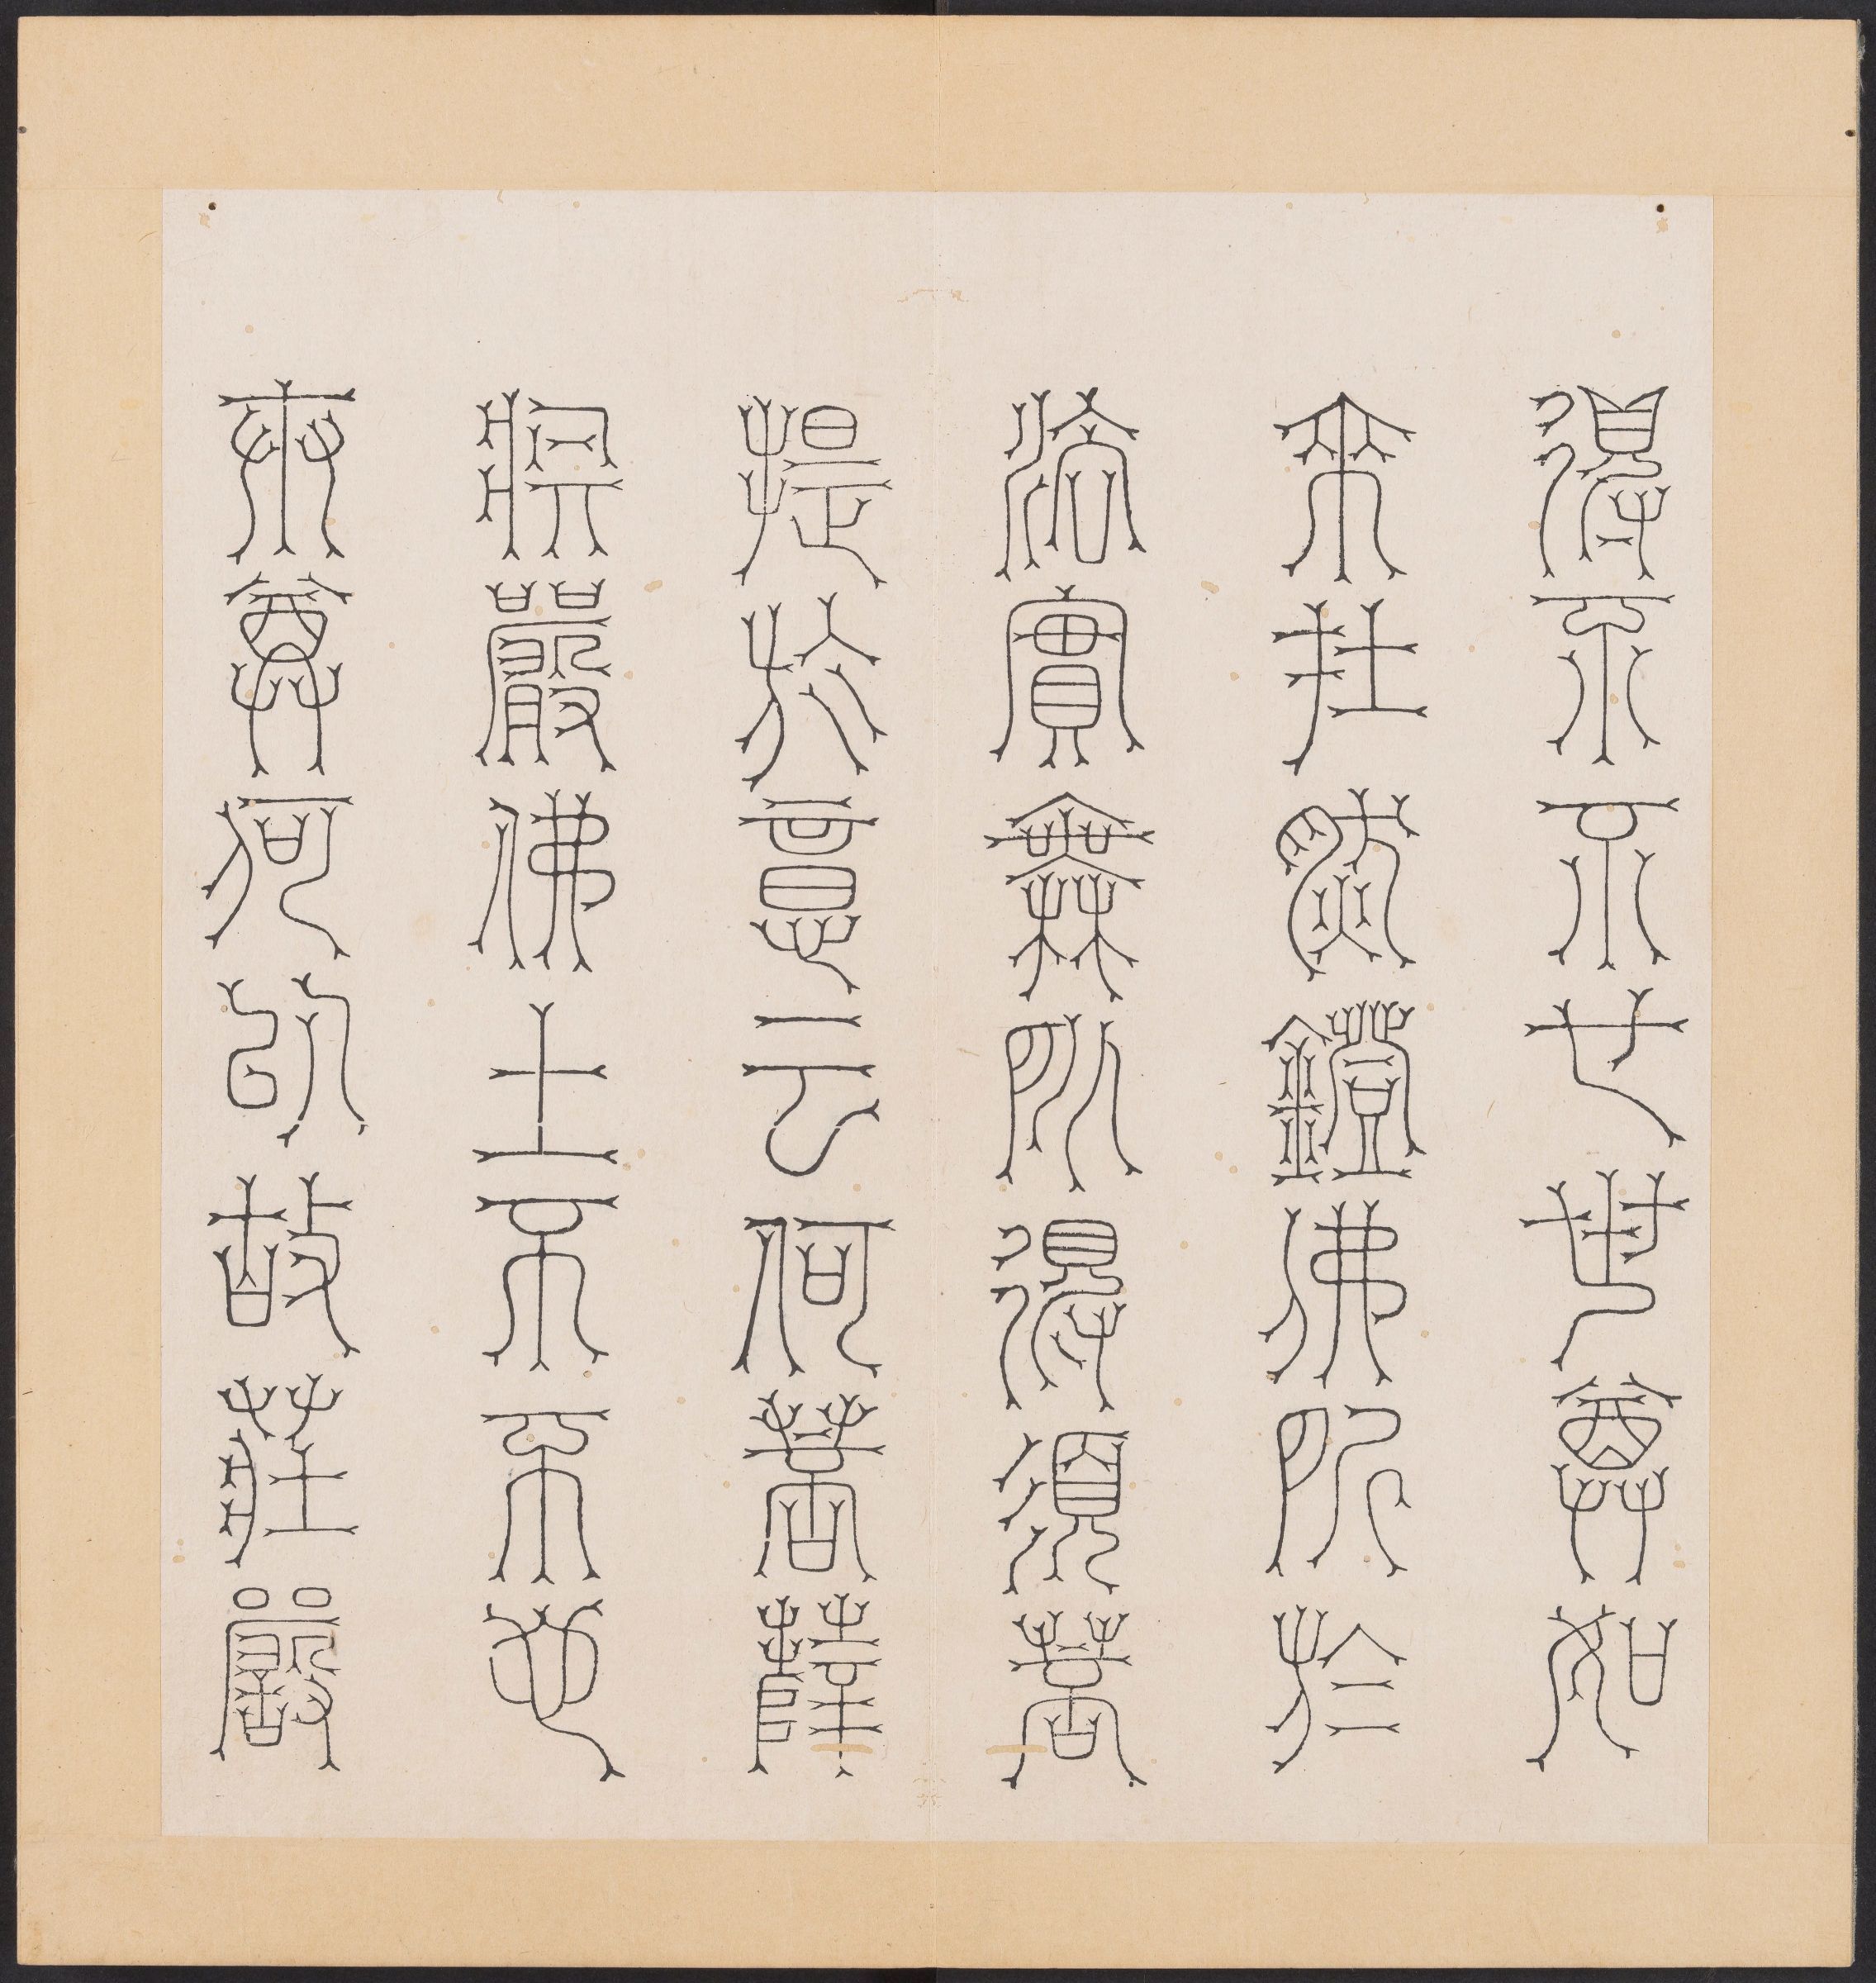 得不不也世尊如
來在然鐙佛所於
法實無所得須菩
提於意云何菩薩
莊嚴佛土不不也
世尊何以故莊嚴